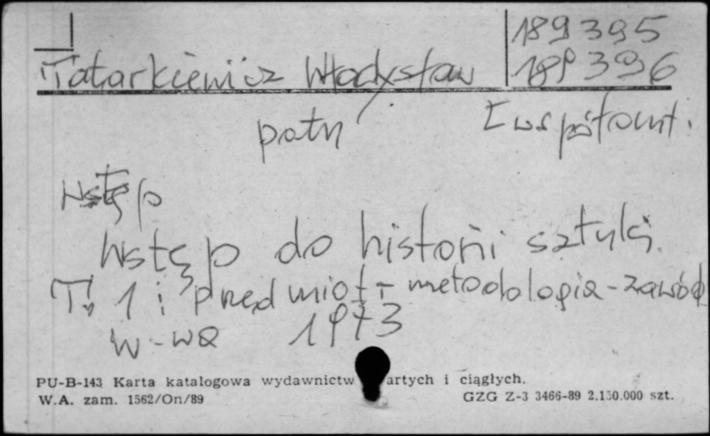 189395
Tatarkiewicz Władysław 189396
patrz [współaut.
Wstęp
Wstęp do historii sztuki.
T. 1: Przedmiot - metodologia - zawód
W-wa 1973
PU-B-143 Karta katalogowa wydawnictw artych i ciągłych.
W.A. zam. 1562/On/89 GZG Z-3 3466-89 2.150.000 szt.